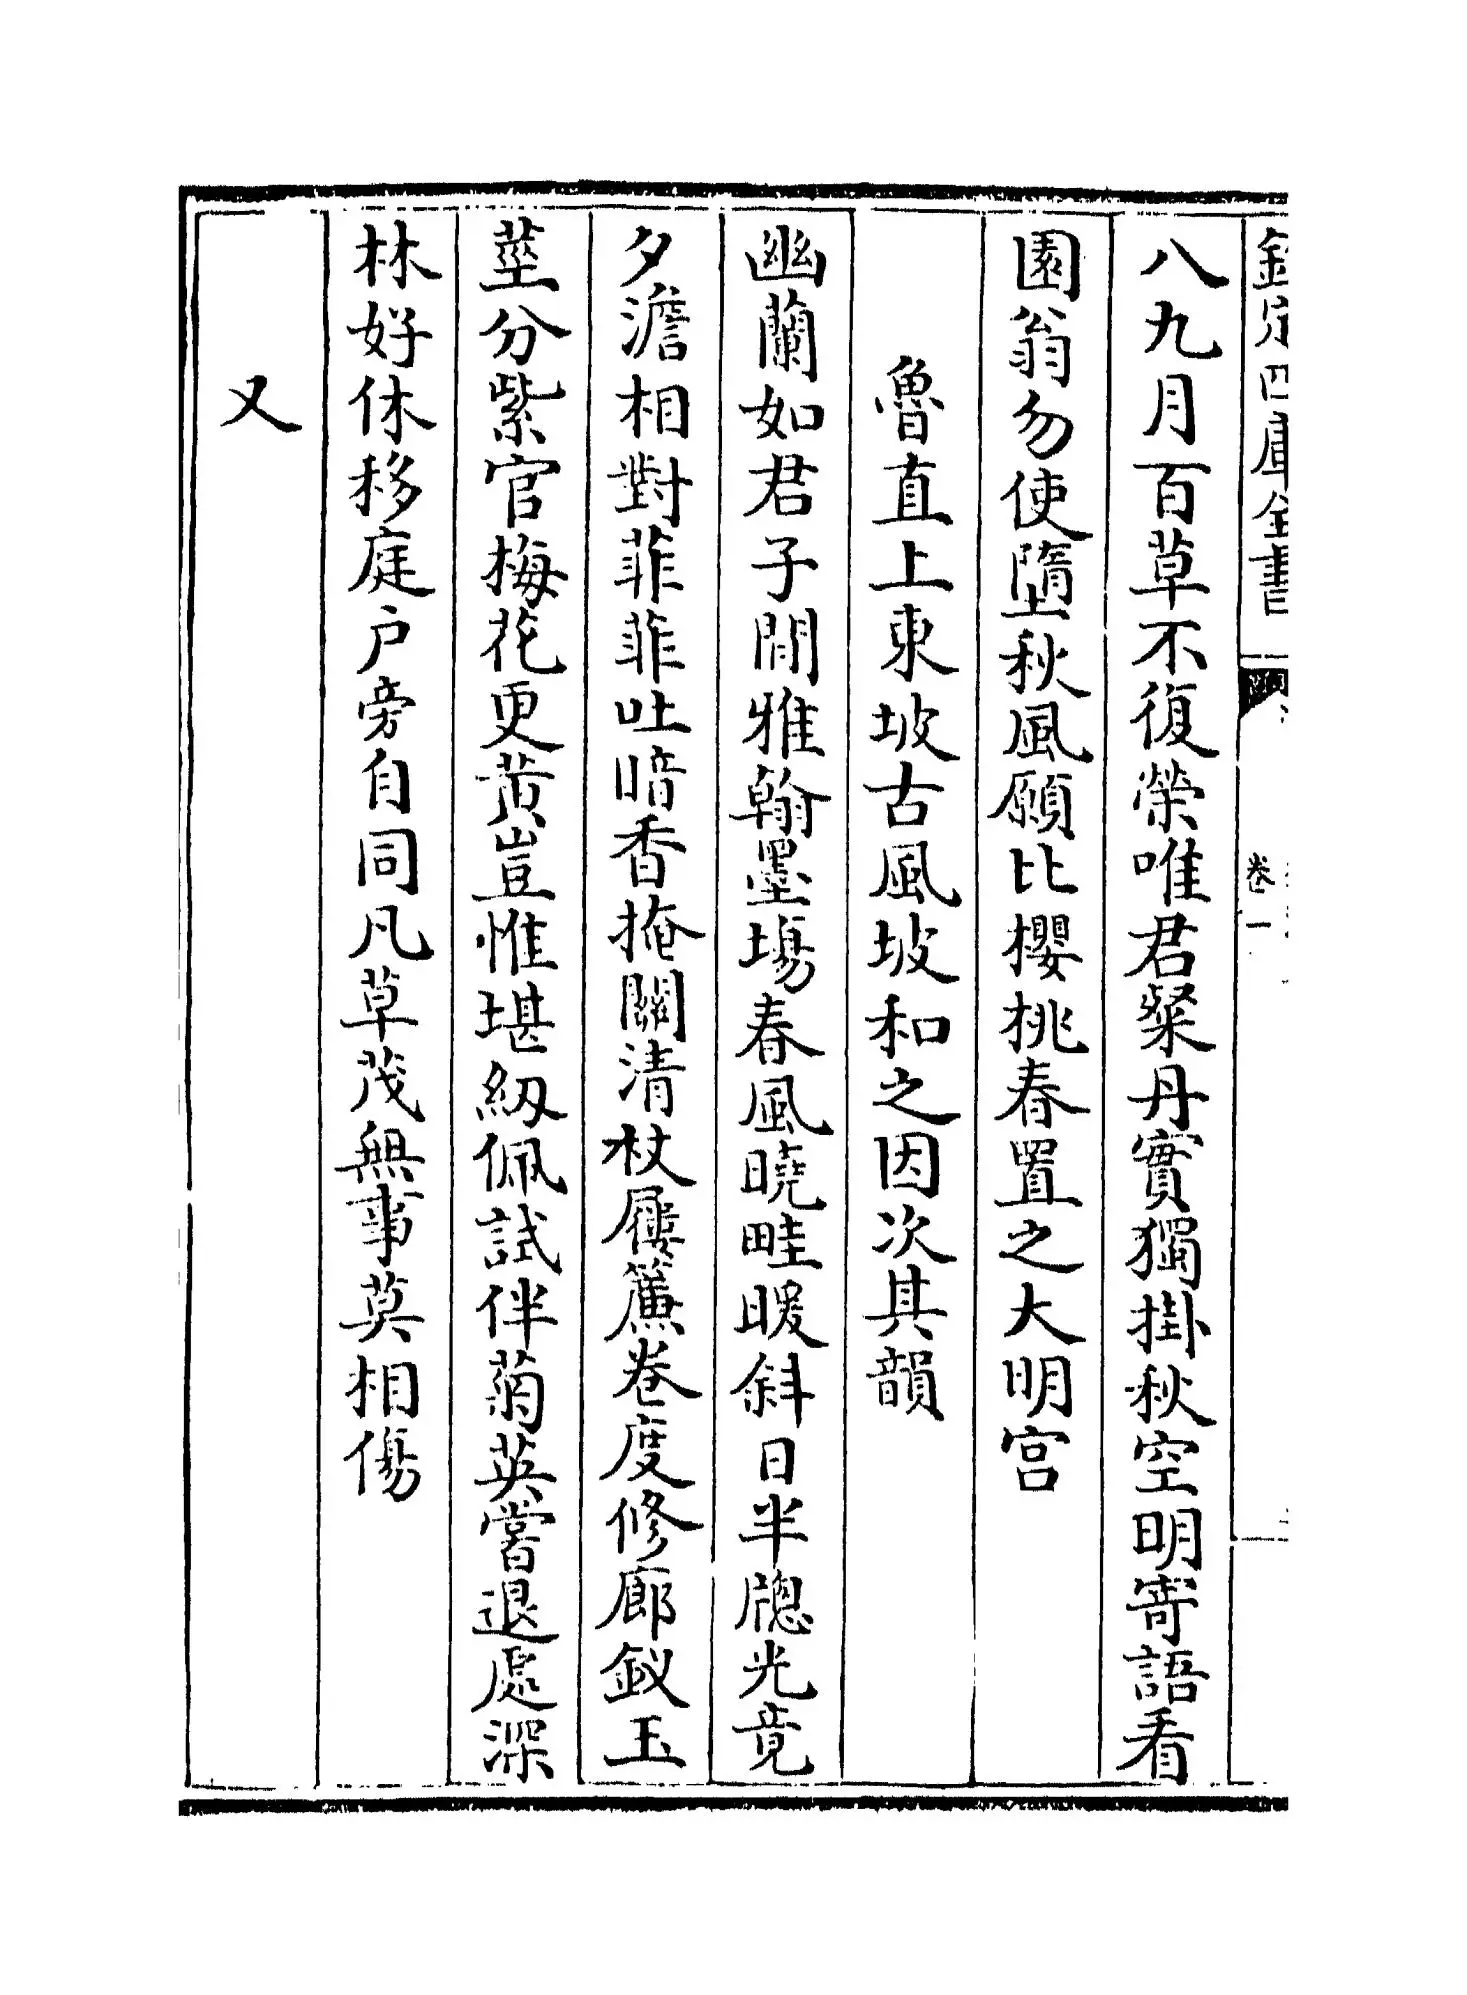 欽定四庫全書
卷一
八九月百草不復榮唯君粲丹實獨掛秋空明寄語看
園翁勿使墮秋風願比櫻桃春置之大明宮
魯直上東坡古風坡和之因次其韻
幽蘭如君子閒雅翰墨場春風曉畦暖斜日半牕光竟
夕澹相對菲菲吐暗香掩關清杖屨簾卷度修廊釵玉
莖分紫官梅花更黃豈惟堪紉佩試伴菊英嘗退處深
林好休移庭户旁自同凡草茂無事莫相傷
又